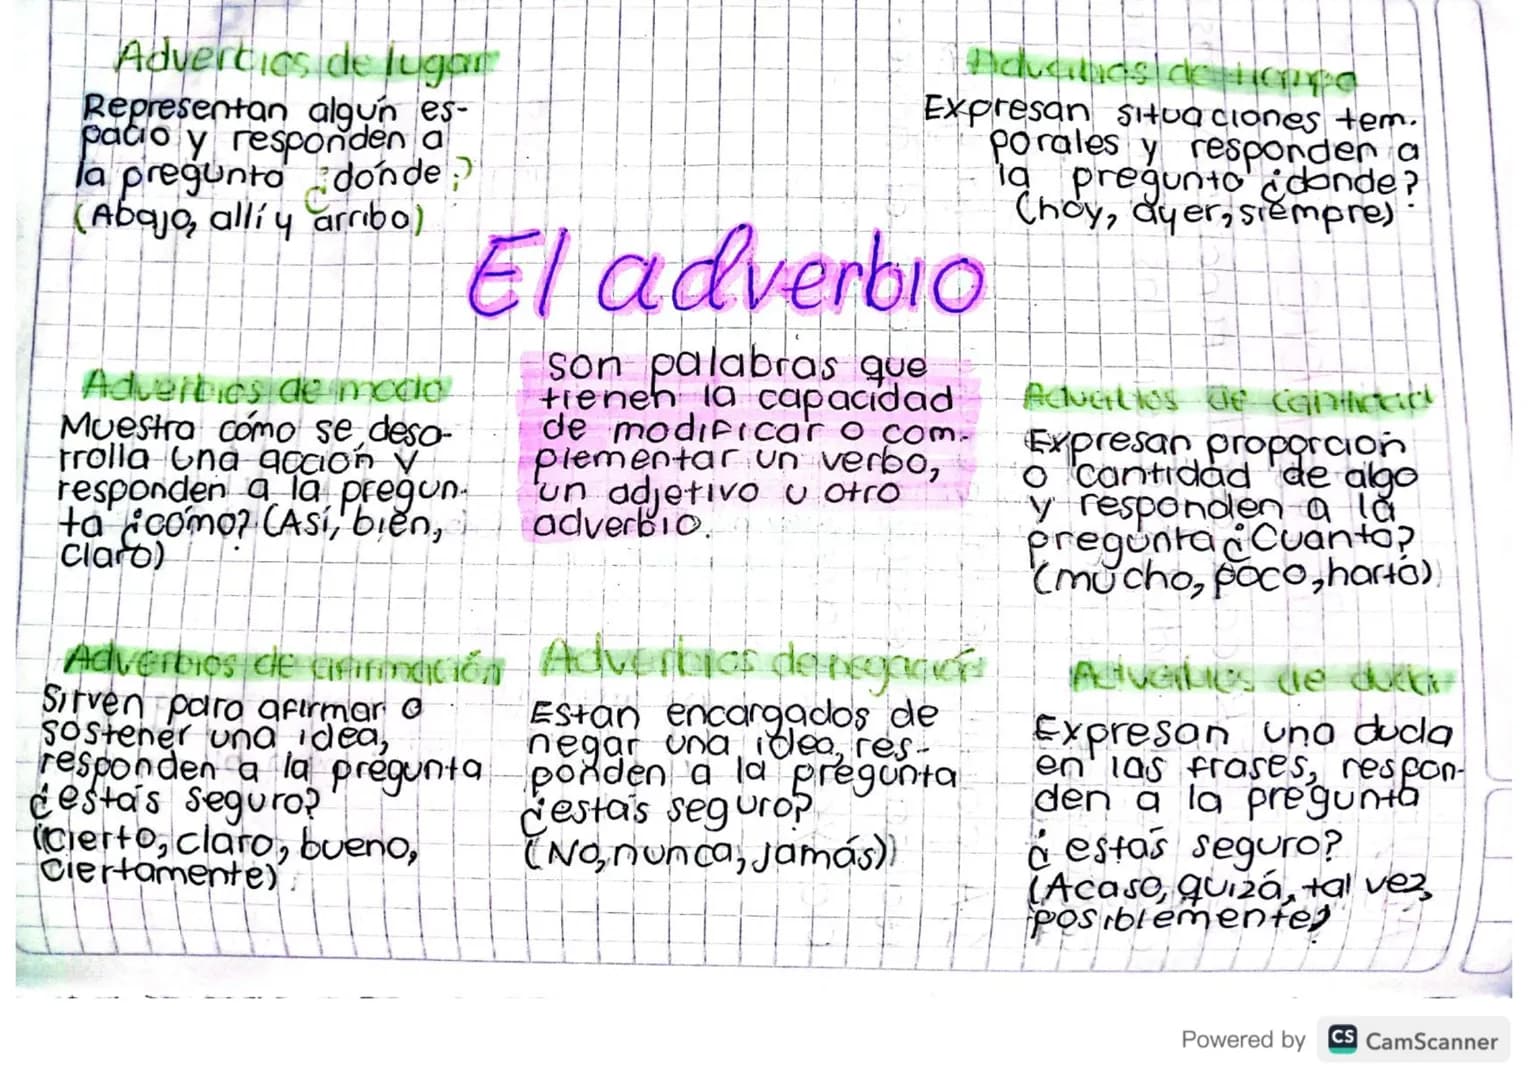 Adverbios de lugar
Representan algún es-
pacio y responden a
la pregunta ¿dónde?
(Abajo, allí y arriba)
Adverbios de tiempo
Expresan situaciones tem-
porales y responden a
la pregunta ¿donde?
(hoy, ayer, siempre)
El adverbio
son palabras que
tienen la capacidad
de modificar o com-
plementar un verbo,
un adjetivo u otro
adverbio.
Adverbios de modo
Muestra cómo se desa-
rrolla una acción y
responden a la pregun-
ta ¿cómo? (Así, bien,
claro)
Adverbios de cantidad
Expresan proporción
o cantidad de algo
y responden a la
pregunta ¿Cuánto?
(mucho, poco, harto)
Adverbios de afirmación
Sirven para afirmar o
sostener una idea,
responden a la pregunta
¿estás seguro?
(cierto, claro, bueno,
ciertamente)
Adverbios de negación
Están encargados de
negar una idea, res-
ponden a la pregunta
¿estás seguro?
(No, nunca, jamás)
Adverbios de duda
Expresan una duda
en las frases, respon-
den a la pregunta
¿estás seguro?
(Acaso, quizá, tal vez,
posiblemente)
Powered by CS CamScanner